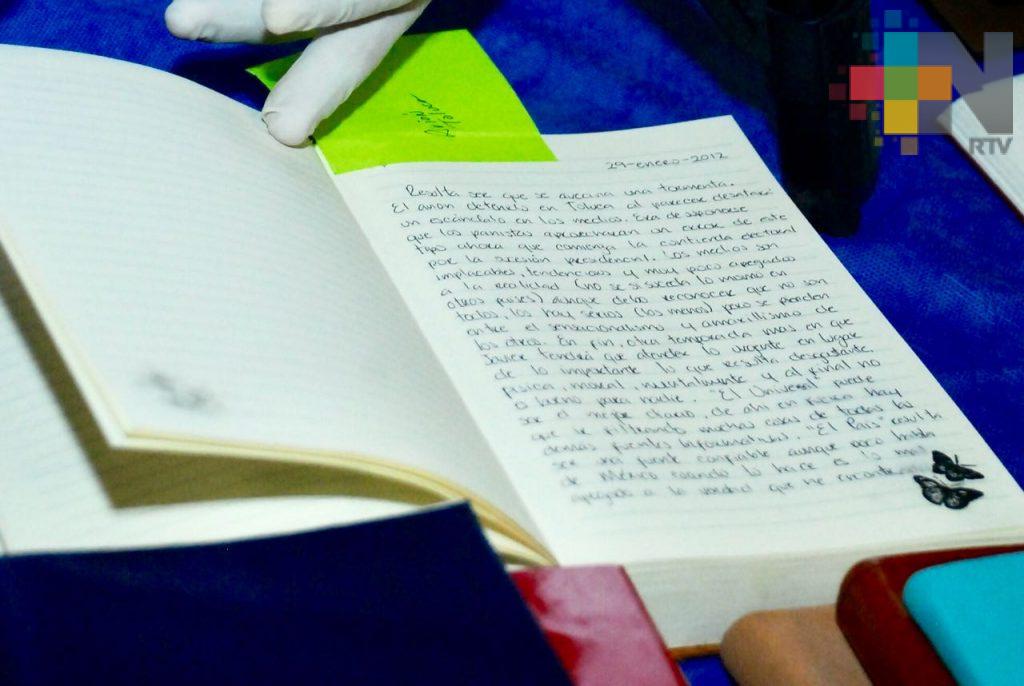 Avión
Toluca
29-enero-2012
Resulta ser que se avecina una tormenta.
El avión detenido en Toluca al parecer desatará
un escándalo en los medios. Era de suponerse
que los panistas aprovecharan un error de este
tipo ahora que comienza la contienda electoral
por la sucesión presidencial. Los medios son
implacables, tendenciosos y muy poco apegados
a la realidad (no se si suceda lo mismo en
otros países) aunque debo reconocer que no son
todos, los hay serios (los menos) pero se pierden
entre el sensacionalismo y amarillismo de
los otros. En fin, otra temporada mas en que
Javier tendrá que atender lo urgente en lugar
de lo importante lo que resulta desgastante,
física, moral, mentalmente y al final no
es bueno para nadie. "El Universal" puede
ser el mejor diario, de ahí en fuera hay
que ir filtrando muchas cosas de todas las
demás fuentes informativas. "El País" resulta
ser una fuente confiable aunque poco habla
de México cuando lo hace es lo mas
apegado a la verdad que he encontrado
N
RTV